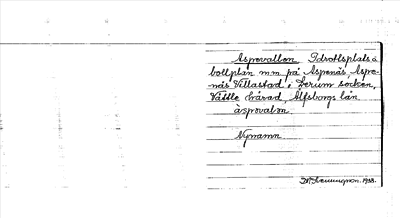 Aspevallen Idrottsplats o
bollplan m m på Aspenäs, Aspe-
näs Villastad i Lerum socken,
Vättle härad, Älfsborgs län
àspəvalən
Nynamn
1938